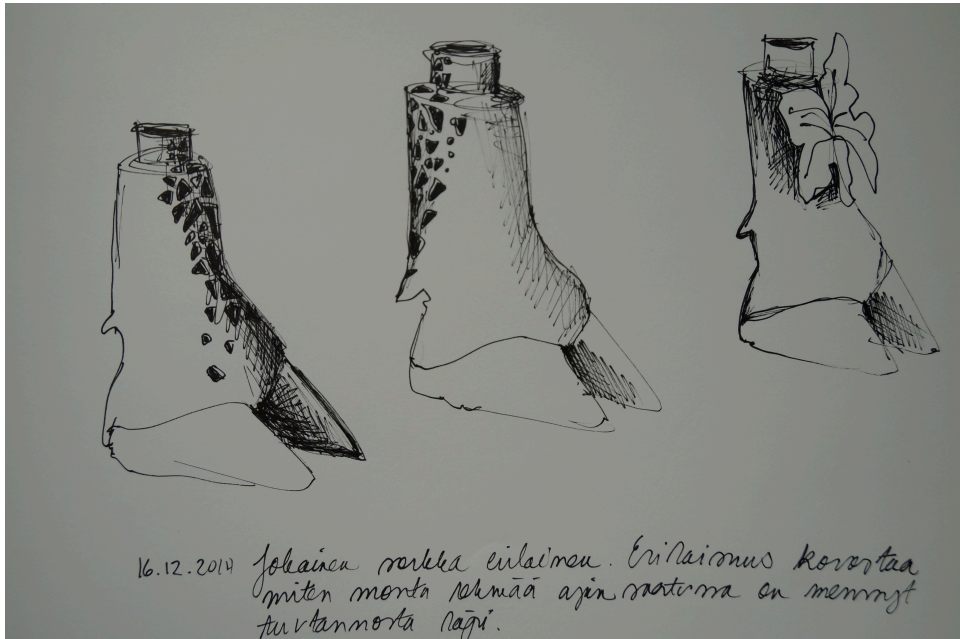 16.12.2014 Jokainen sorkka erilainen. Erilaisuus korostaa
miten monta lehmää ajan saatossa on mennyt
tuotannosta läpi.